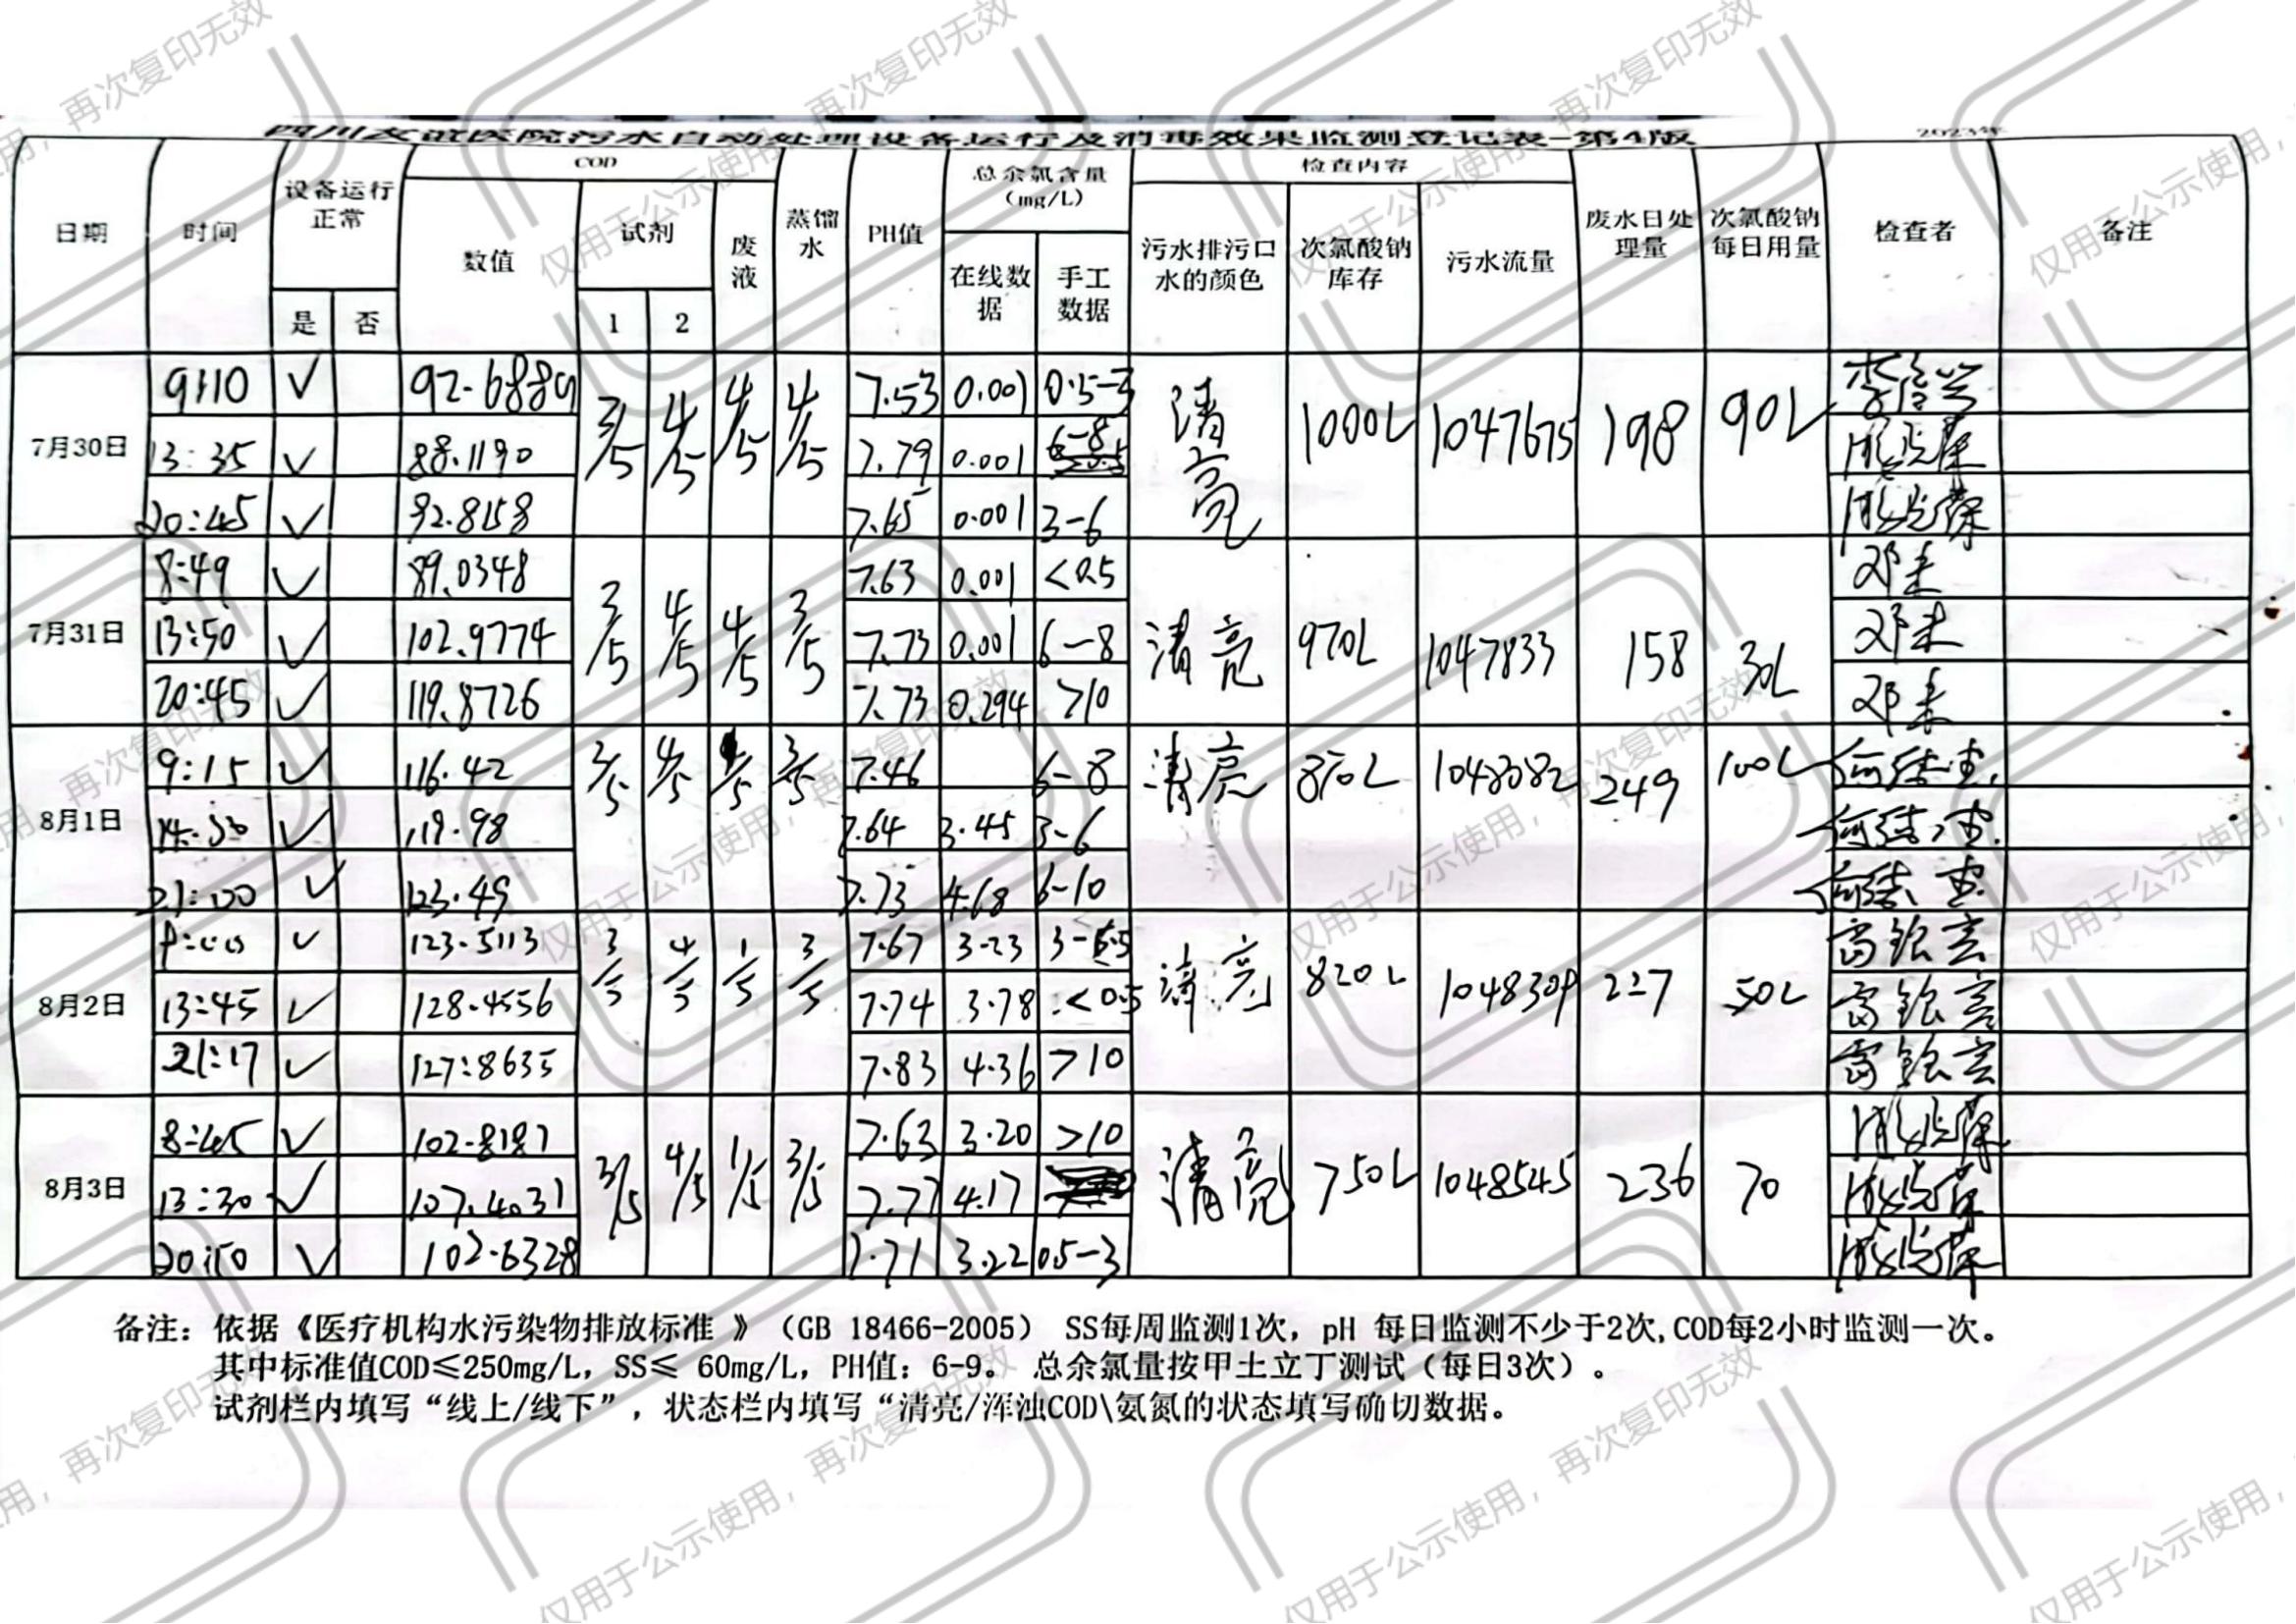 四川友谊医院污水自动处理设备运行及消毒效果监测登记表-第4版 2023年
日期 时间 设备运行正常 COD 蒸馏水 PH值 总余氯含量(mg/L) 检查内容 废水日处理量 次氯酸钠每日用量 检查者 备注
是 否 数值 试剂 1 2 废液 在线数据 手工数据 污水排污口水的颜色 次氯酸钠库存 污水流量
7月30日 9:10 √ 92.6889 3/5 4/5 4/5 4/5 7.53 0.001 0.5-3 清亮 1000L 1047675 198 90L
13:35 √ 88.1190 7.79 0.001 6-8
20:45 √ 92.8158 7.65 0.001 3-6
7月31日 8:49 √ 89.0348 3/5 4/5 4/5 3/5 7.63 0.001 <0.5 清亮 970L 1047833 158 30L
13:50 √ 102.9774 7.73 0.001 6-8
20:45 √ 119.8726 7.73 0.294 >10
8月1日 9:15 √ 116.42 3/5 4/5 3/5 7.46 6-8 清亮 870L 1048082 249 100L
√ 119.98 7.64 3.45 3-6
21:00 √ 123.49 7.73 4.68 6-10
8月2日 √ 123.5113 3/5 4/5 1/5 3/5 7.67 3.23 清亮 820L 1048309 227 50L
13:45 √ 128.4556 7.74 3.78 <0.5
21:17 √ 127.8635 7.83 4.36 >10
8月3日 8:45 √ 102.8187 3/5 4/5 1/5 3/5 7.63 3.20 >10 清亮 750L 1048545 236 70
13:30 √ 107.4031 7.77 4.17
20:50 √ 102.6328 7.71 3.22 0.5-3
备注：依据《医疗机构水污染物排放标准 》（GB 18466-2005） SS每周监测1次，pH 每日监测不少于2次,COD每2小时监测一次。
其中标准值COD≤250mg/L，SS≤ 60mg/L，PH值：6-9。 总余氯量按甲土立丁测试（每日3次）。
试剂栏内填写“线上/线下”，状态栏内填写“清亮/浑浊COD\氨氮的状态填写确切数据。
仅用于公示使用，再次复印无效